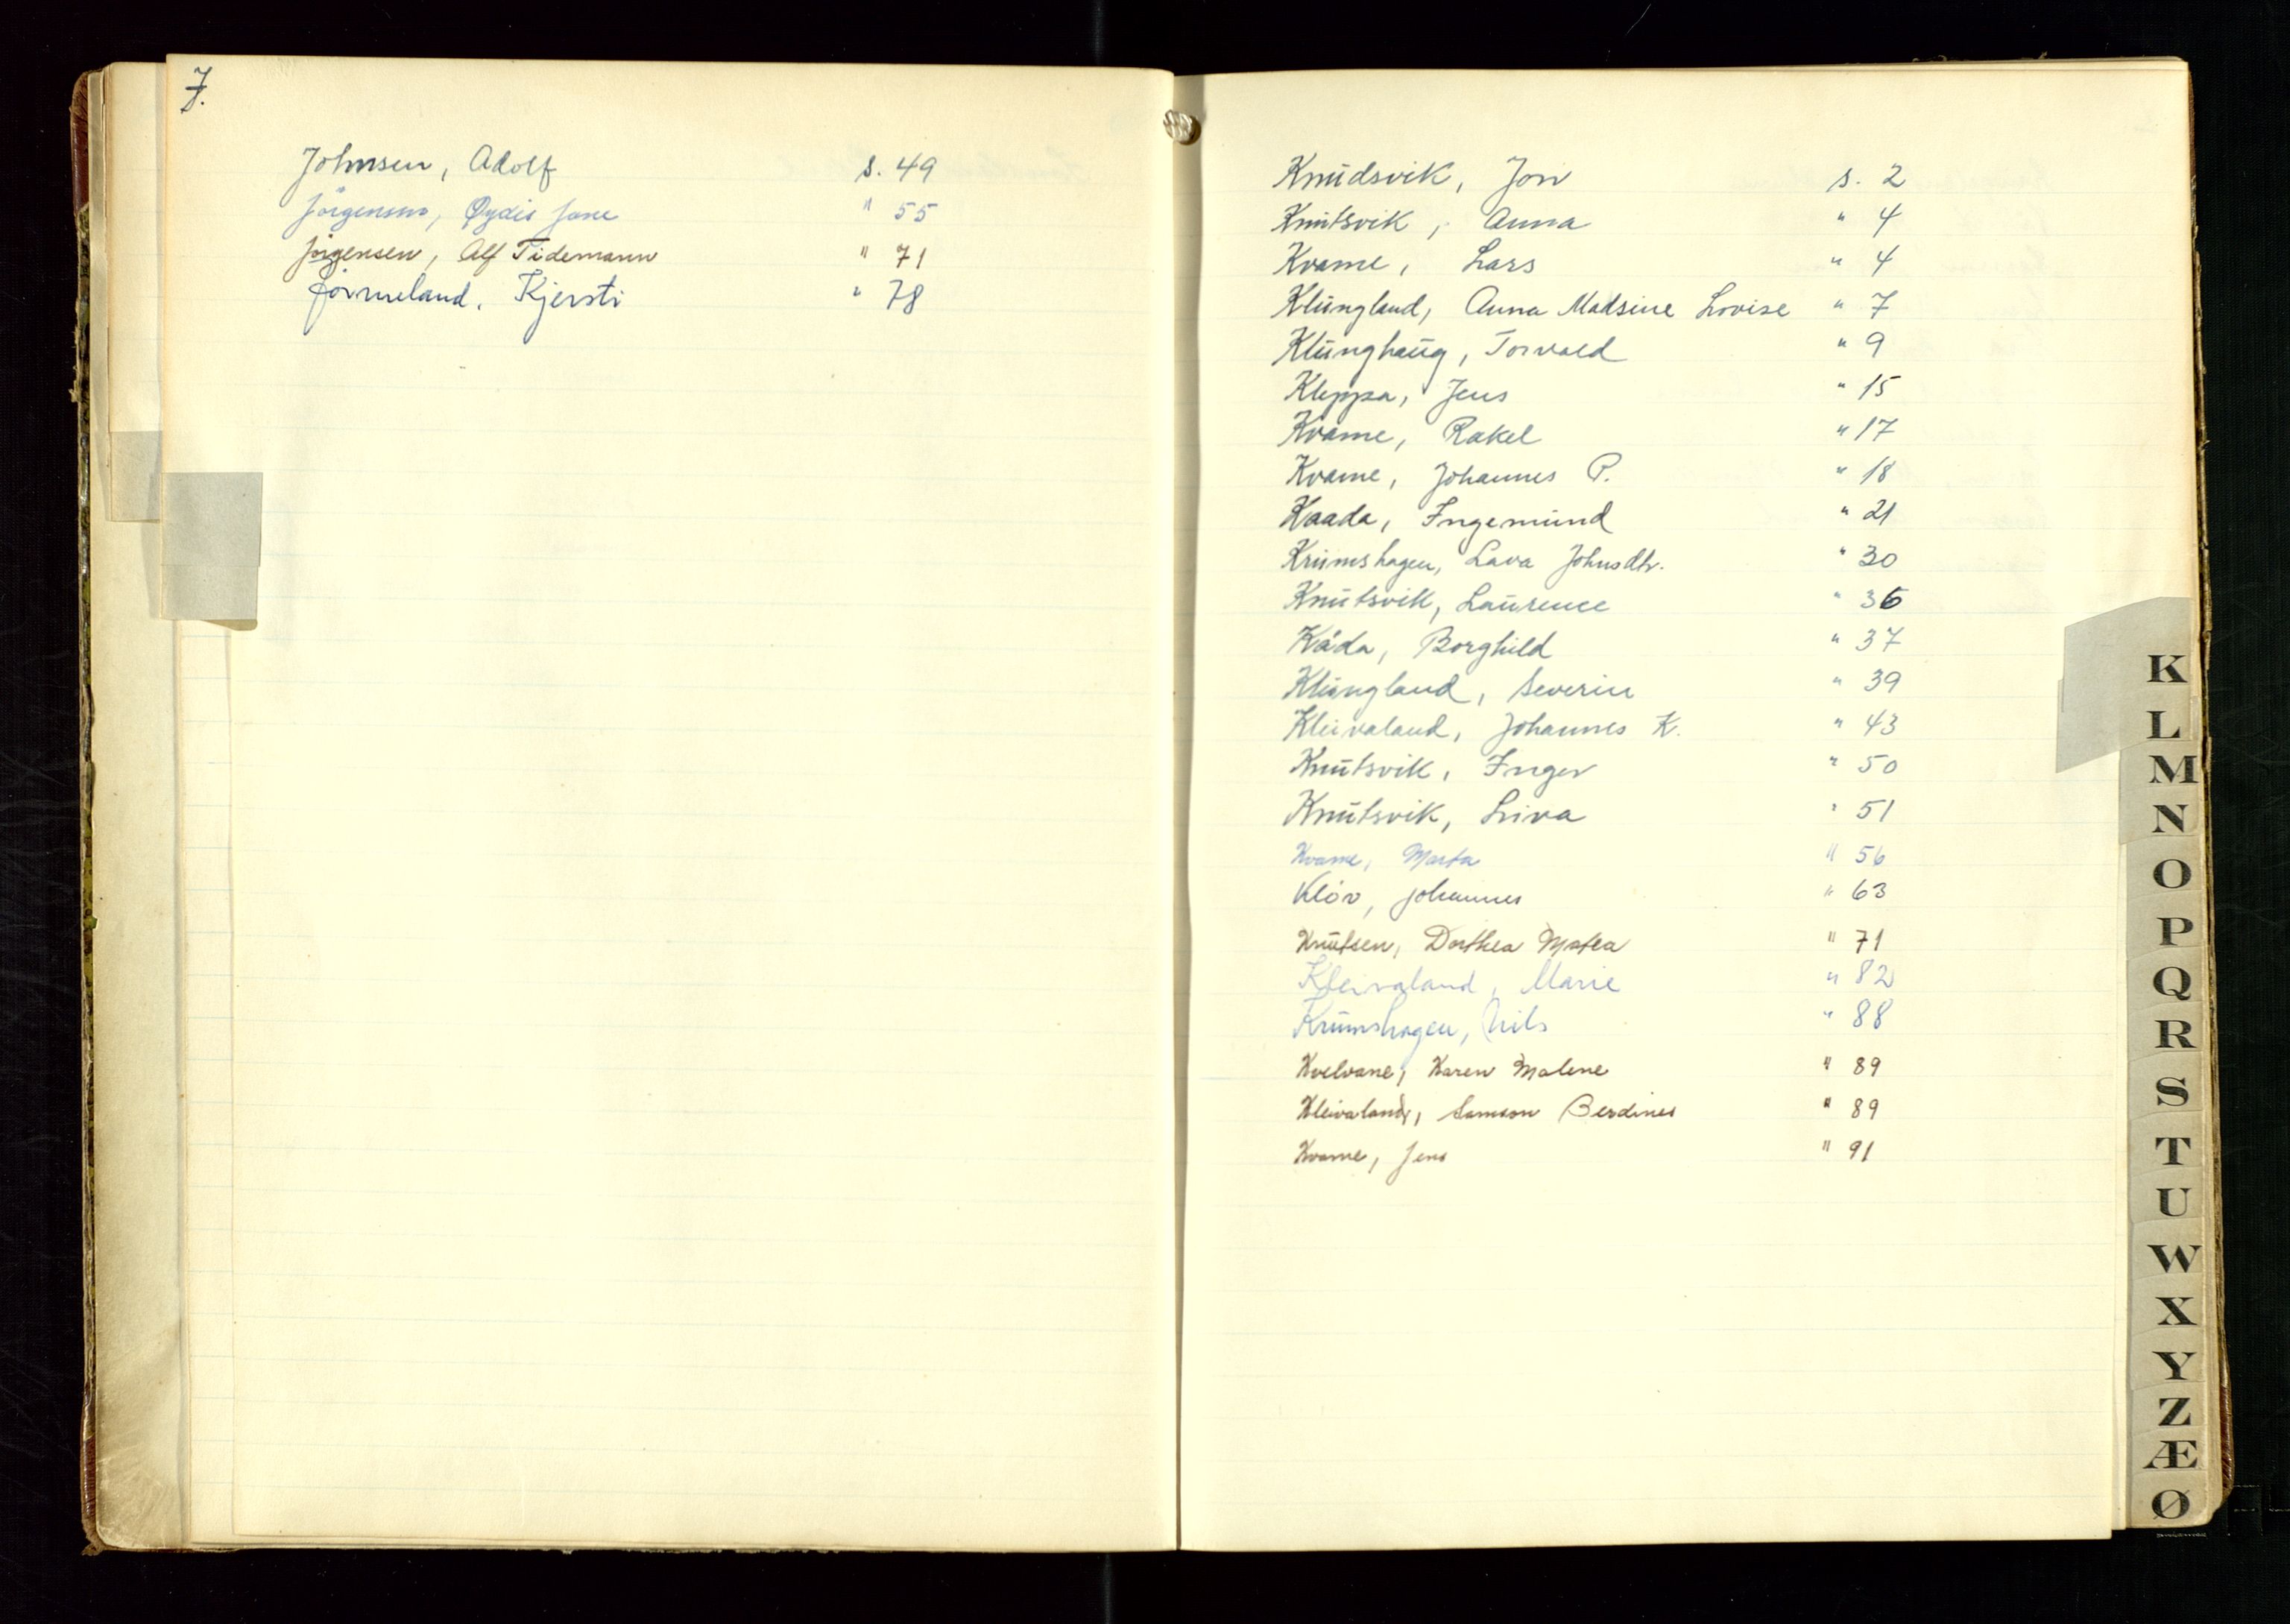 J.
Johnsen, Adolf s. 49
Jörgensen, Øydis Jane " 55
Jörgensen, Alf Tidemann " 71
Jörmeland. Kjersti " 78
Knudsvik, Jon s. 2
Knutsvik, Anna " 4
Kvame, Lars " 4
Klungland, Anna Madsine Lovise " 7
Klunghaug, Torvald " 9
Kleppa, Jens " 15
Kvame, Rakel " 17
Kvame, Johannes P. " 18
Kaada, Ingemund " 21
Krumshagen, Lava Johnsdtr. " 30
Knutsvik, Laurence " 36
Kåda, Borghild " 37
Klungland, Severin " 39
Kleivaland, Johannes K. " 43
Knutsvik, Inger " 50
Knutsvik, Liva " 51
Kvame, Marta " 56
Klöv, Johannes " 63
Knutsen, Dorthea Matea " 71
Kleivaland, Marie " 82
Krumshagen, Nils " 88
Kvelvane, Karen Malene " 89
Kleivaland, Samson Berdines " 89
Kvame, Jens " 91
K
L
M
N
O
P
Q
R
S
T
U
W
X
Y
Z
Æ
Ø